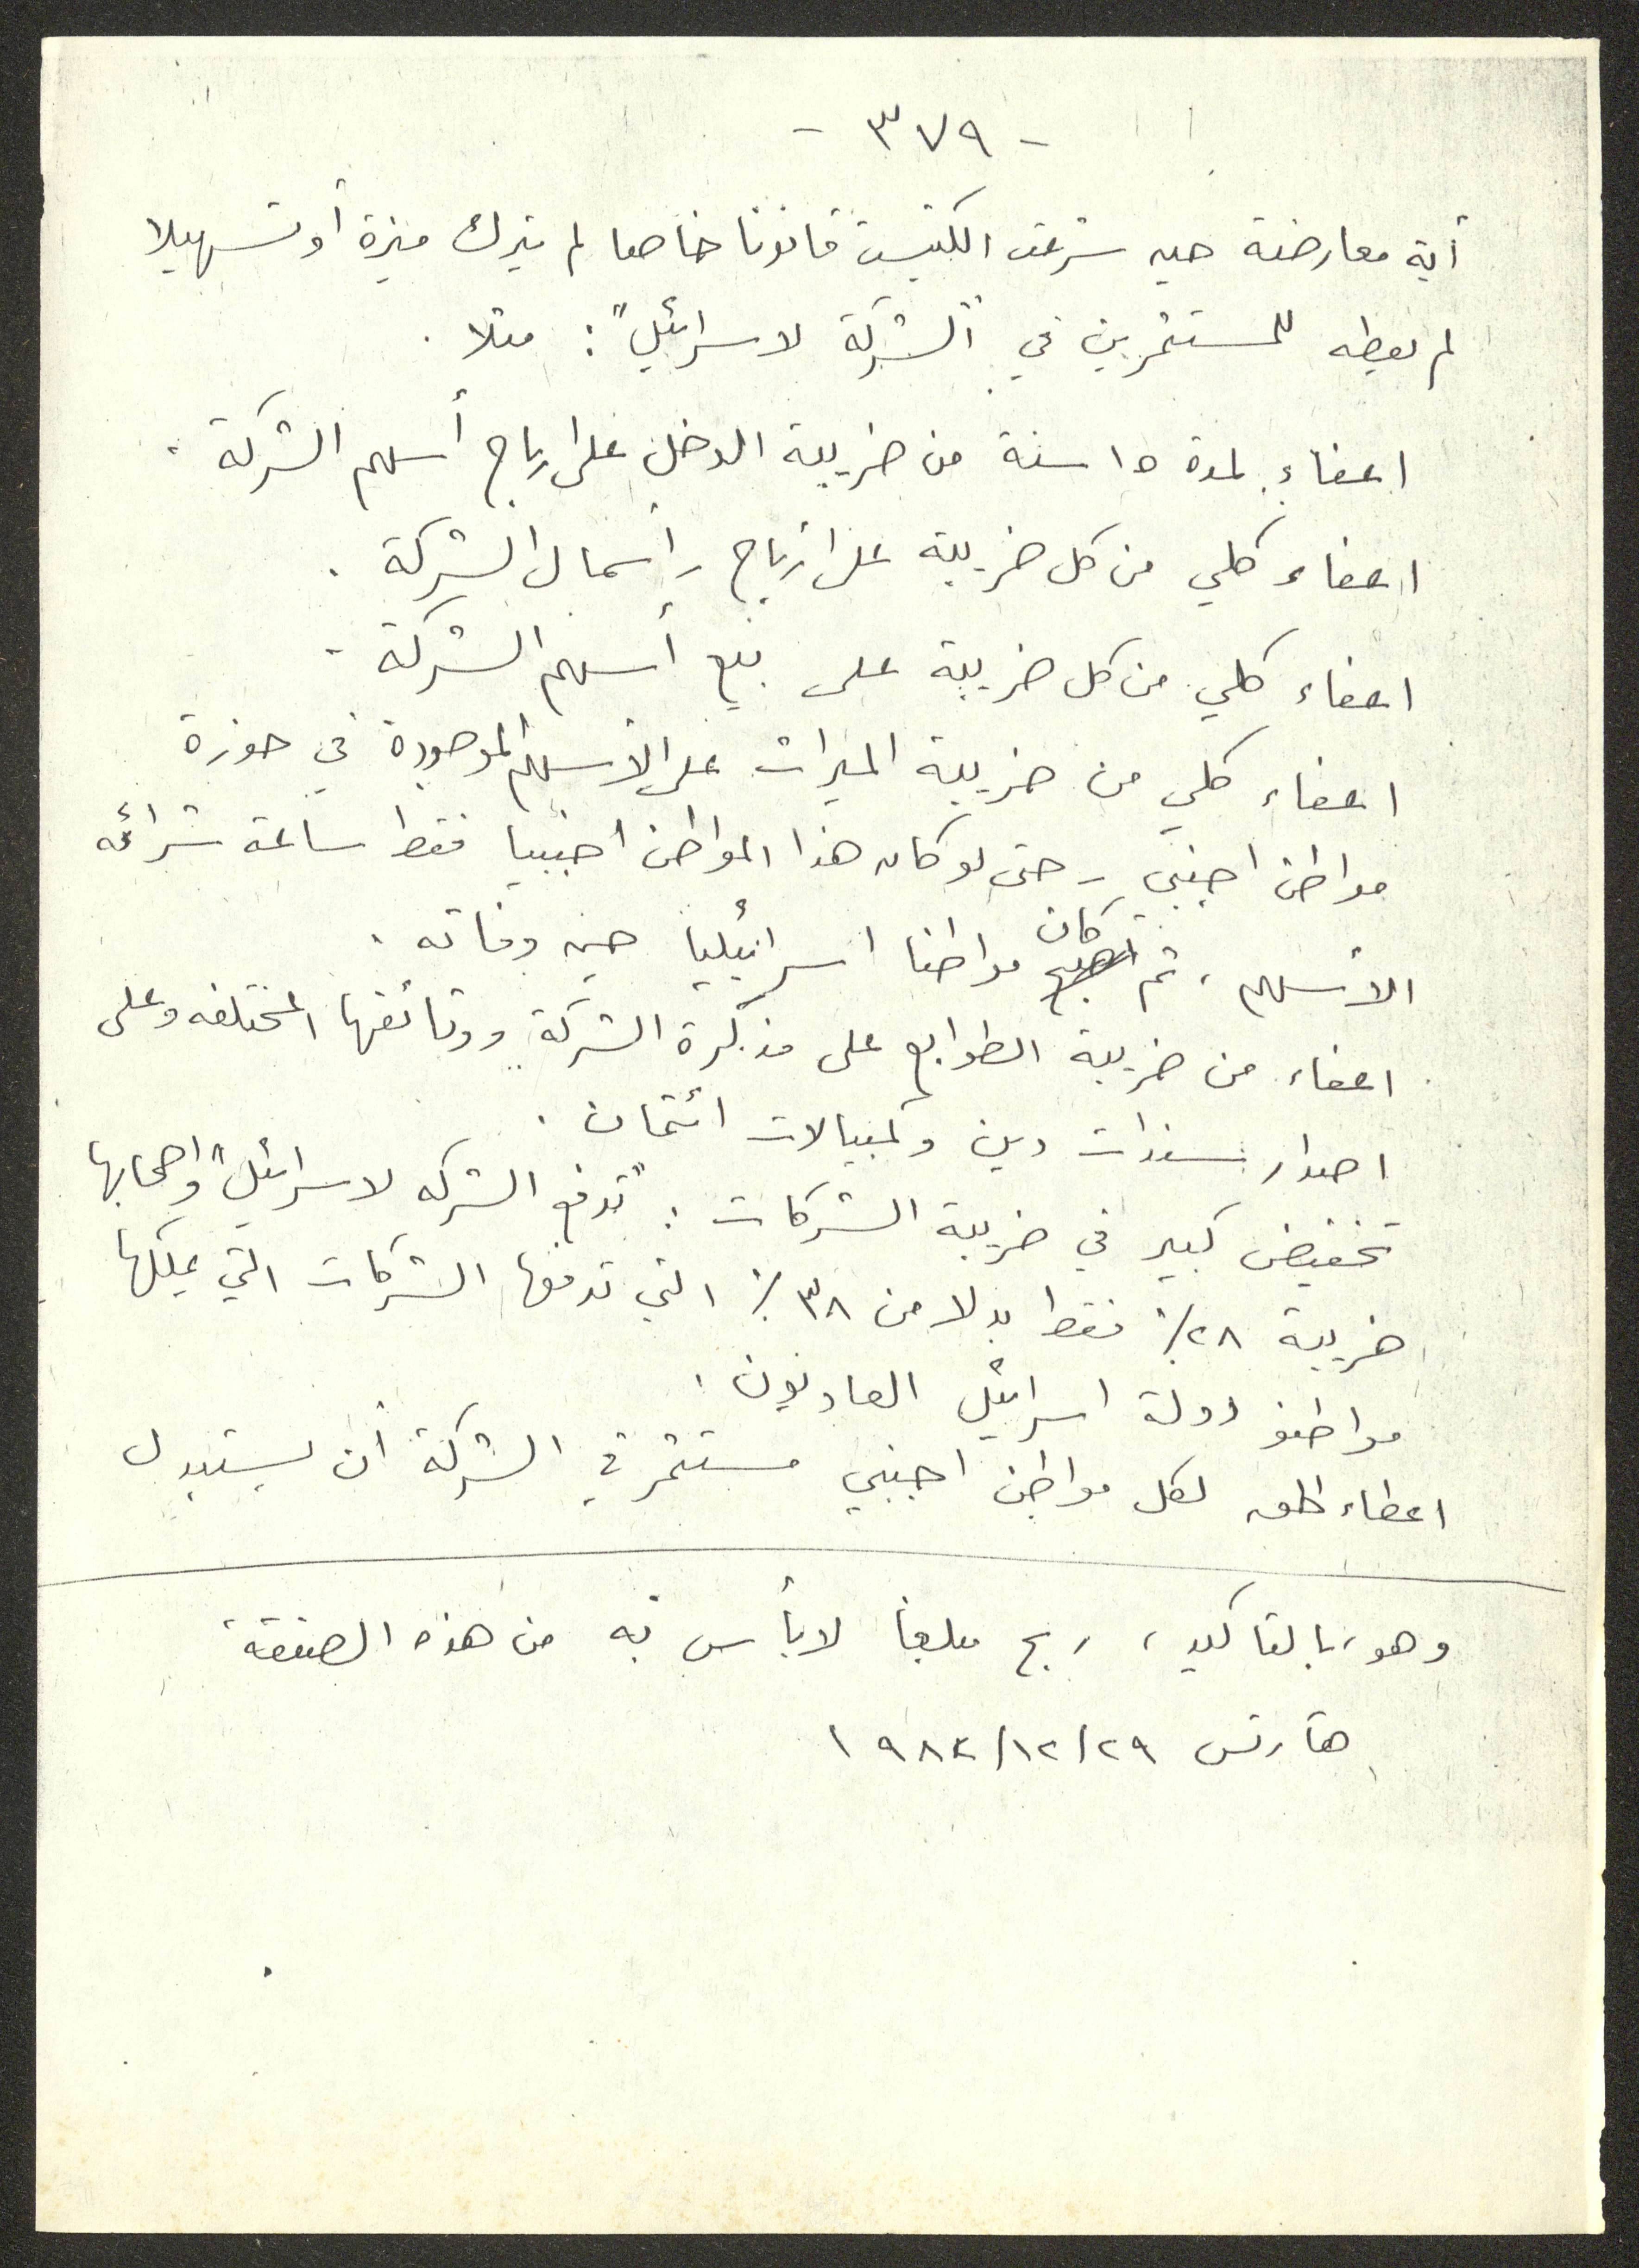 - ٣٧٩ -
أية معارضة حين سرعت الكنيست قانونا خاصا لم يترك ميزة أو تسهيلا
لم يعطه للمستثمرين في "الشركة لاسرائيل": مثلا .
اعفاء لمدة ١٥ سنة من ضريبة الدخل على ارباح أسهم الشركة .
اعفاء كلي من كل ضريبة على ارباح رأسمال الشركة .
اعفاء كلي من كل ضريبة على بيع أسهم الشركة .
اعفاء كلي من ضريبة الميراث على الأسهم الموجودة في حوزة
مواطن اجنبي - حتى لو كان هذا المواطن اجنبيا فقط ساعة شرائه
الأسهم ، ثم كان مواطنا اسرائيليا حين وفاته .
اعفاء من ضريبة الطوابع على مذكرة الشركة ووثائقها المختلفه وعلى
اصدار سندات دين وكمبيالات ائتمان .
تخفيض كبير في ضريبة الشركات : تدفع "الشركه لاسرائيل" واصحابها
ضريبة ٢٨٪ فقط بدلا من ٣٨٪ التي تدفعها الشركات التي يملكها
مواطنو دولة اسرائيل العاديون .
اعطاء الحق لكل مواطن اجنبي مستثمر في الشركة أن يستبدل
وهو، بالتاكيد ، ربح مبلغا لا بأس به من هذه الصفقة
هآرتس ٢٩/١٢/١٩٨٢